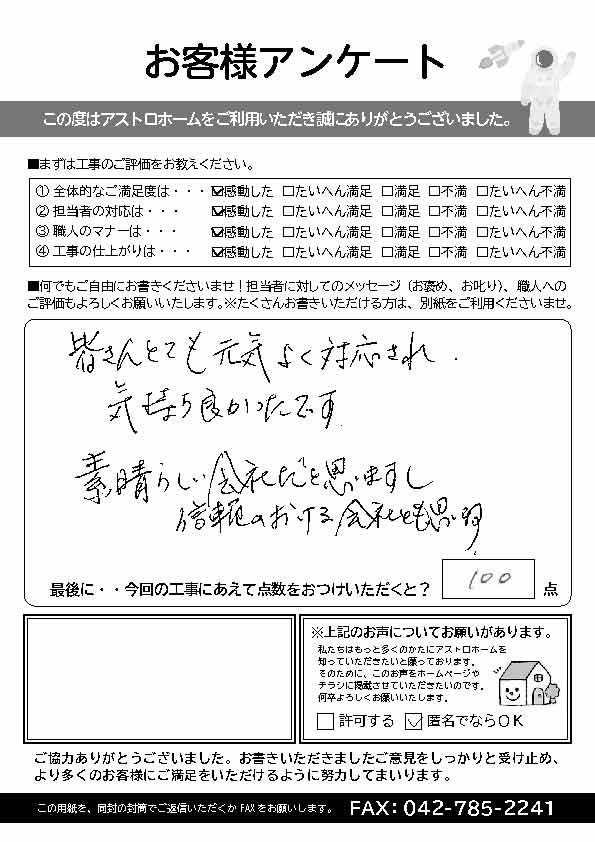 お客様アンケート
この度はアストロホームをご利用いただき誠にありがとうございました。
■まずは工事のご評価をお教えください。
① 全体的なご満足度は・・・ ☑感動した □たいへん満足 □満足 □不満 □たいへん不満
② 担当者の対応は・・・ ☑感動した □たいへん満足 □満足 □不満 □たいへん不満
③ 職人のマナーは・・・ ☑感動した □たいへん満足 □満足 □不満 □たいへん不満
④ 工事の仕上がりは・・・ ☑感動した □たいへん満足 □満足 □不満 □たいへん不満
■何でもご自由にお書きくださいませ！担当者に対してのメッセージ（お褒め、お叱り）、職人への
ご評価もよろしくお願いいたします。※たくさんお書きいただける方は、別紙をご利用くださいませ。
皆さんとても元気よく対応され
気持ち良かったです
素晴らしい会社だと思いますし
信頼のおける会社とも思う
最後に・・今回の工事にあえて点数をおつけいただくと？ 100 点
※上記のお声についてお願いがあります。
私たちはもっと多くのかたにアストロホームを
知っていただきたいと願っております。
そのために、このお声をホームページや
チラシに掲載させていただきたいのです。
何卒よろしくお願いいたします。
□許可する ☑匿名でならＯＫ
ご協力ありがとうございました。お書きいただきましたご意見をしっかりと受け止め、
より多くのお客様にご満足をいただけるように努力してまいります。
この用紙を、同封の封筒でご返信いただくか FAX をお願いします。 FAX：042-785-2241